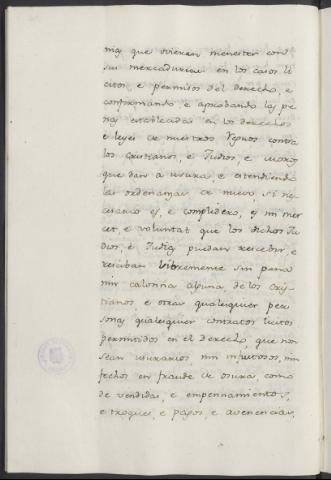 mas que ovieren menester con
su mercadurias en los casos li
citos, e permisos del derecho, e
conformando, e aprobando las pe
nas establecidas en los derechos
e leyes de nuestros Regnos contra
los Cristianos, e Judios, e moros
que dan a usura, e estendiendo
las ordenanzas de nuevo, si ne
cesario es, e complidero, es mi mer
cet, e voluntat que los dichos Ju
dios, e Judias puedan recebir, e
reciban libremente sin pena
nin calonna alguna, de los Cris
tianos e otras qualesquier per
sonas qualesquier contratos licitos
permitidos en el derecho, que non
sean usurarios, nin infintosos, nin
fechos en fraude de osura, como
de vendidas, e empennamientos,
e troques, e pagos, e avenencias,